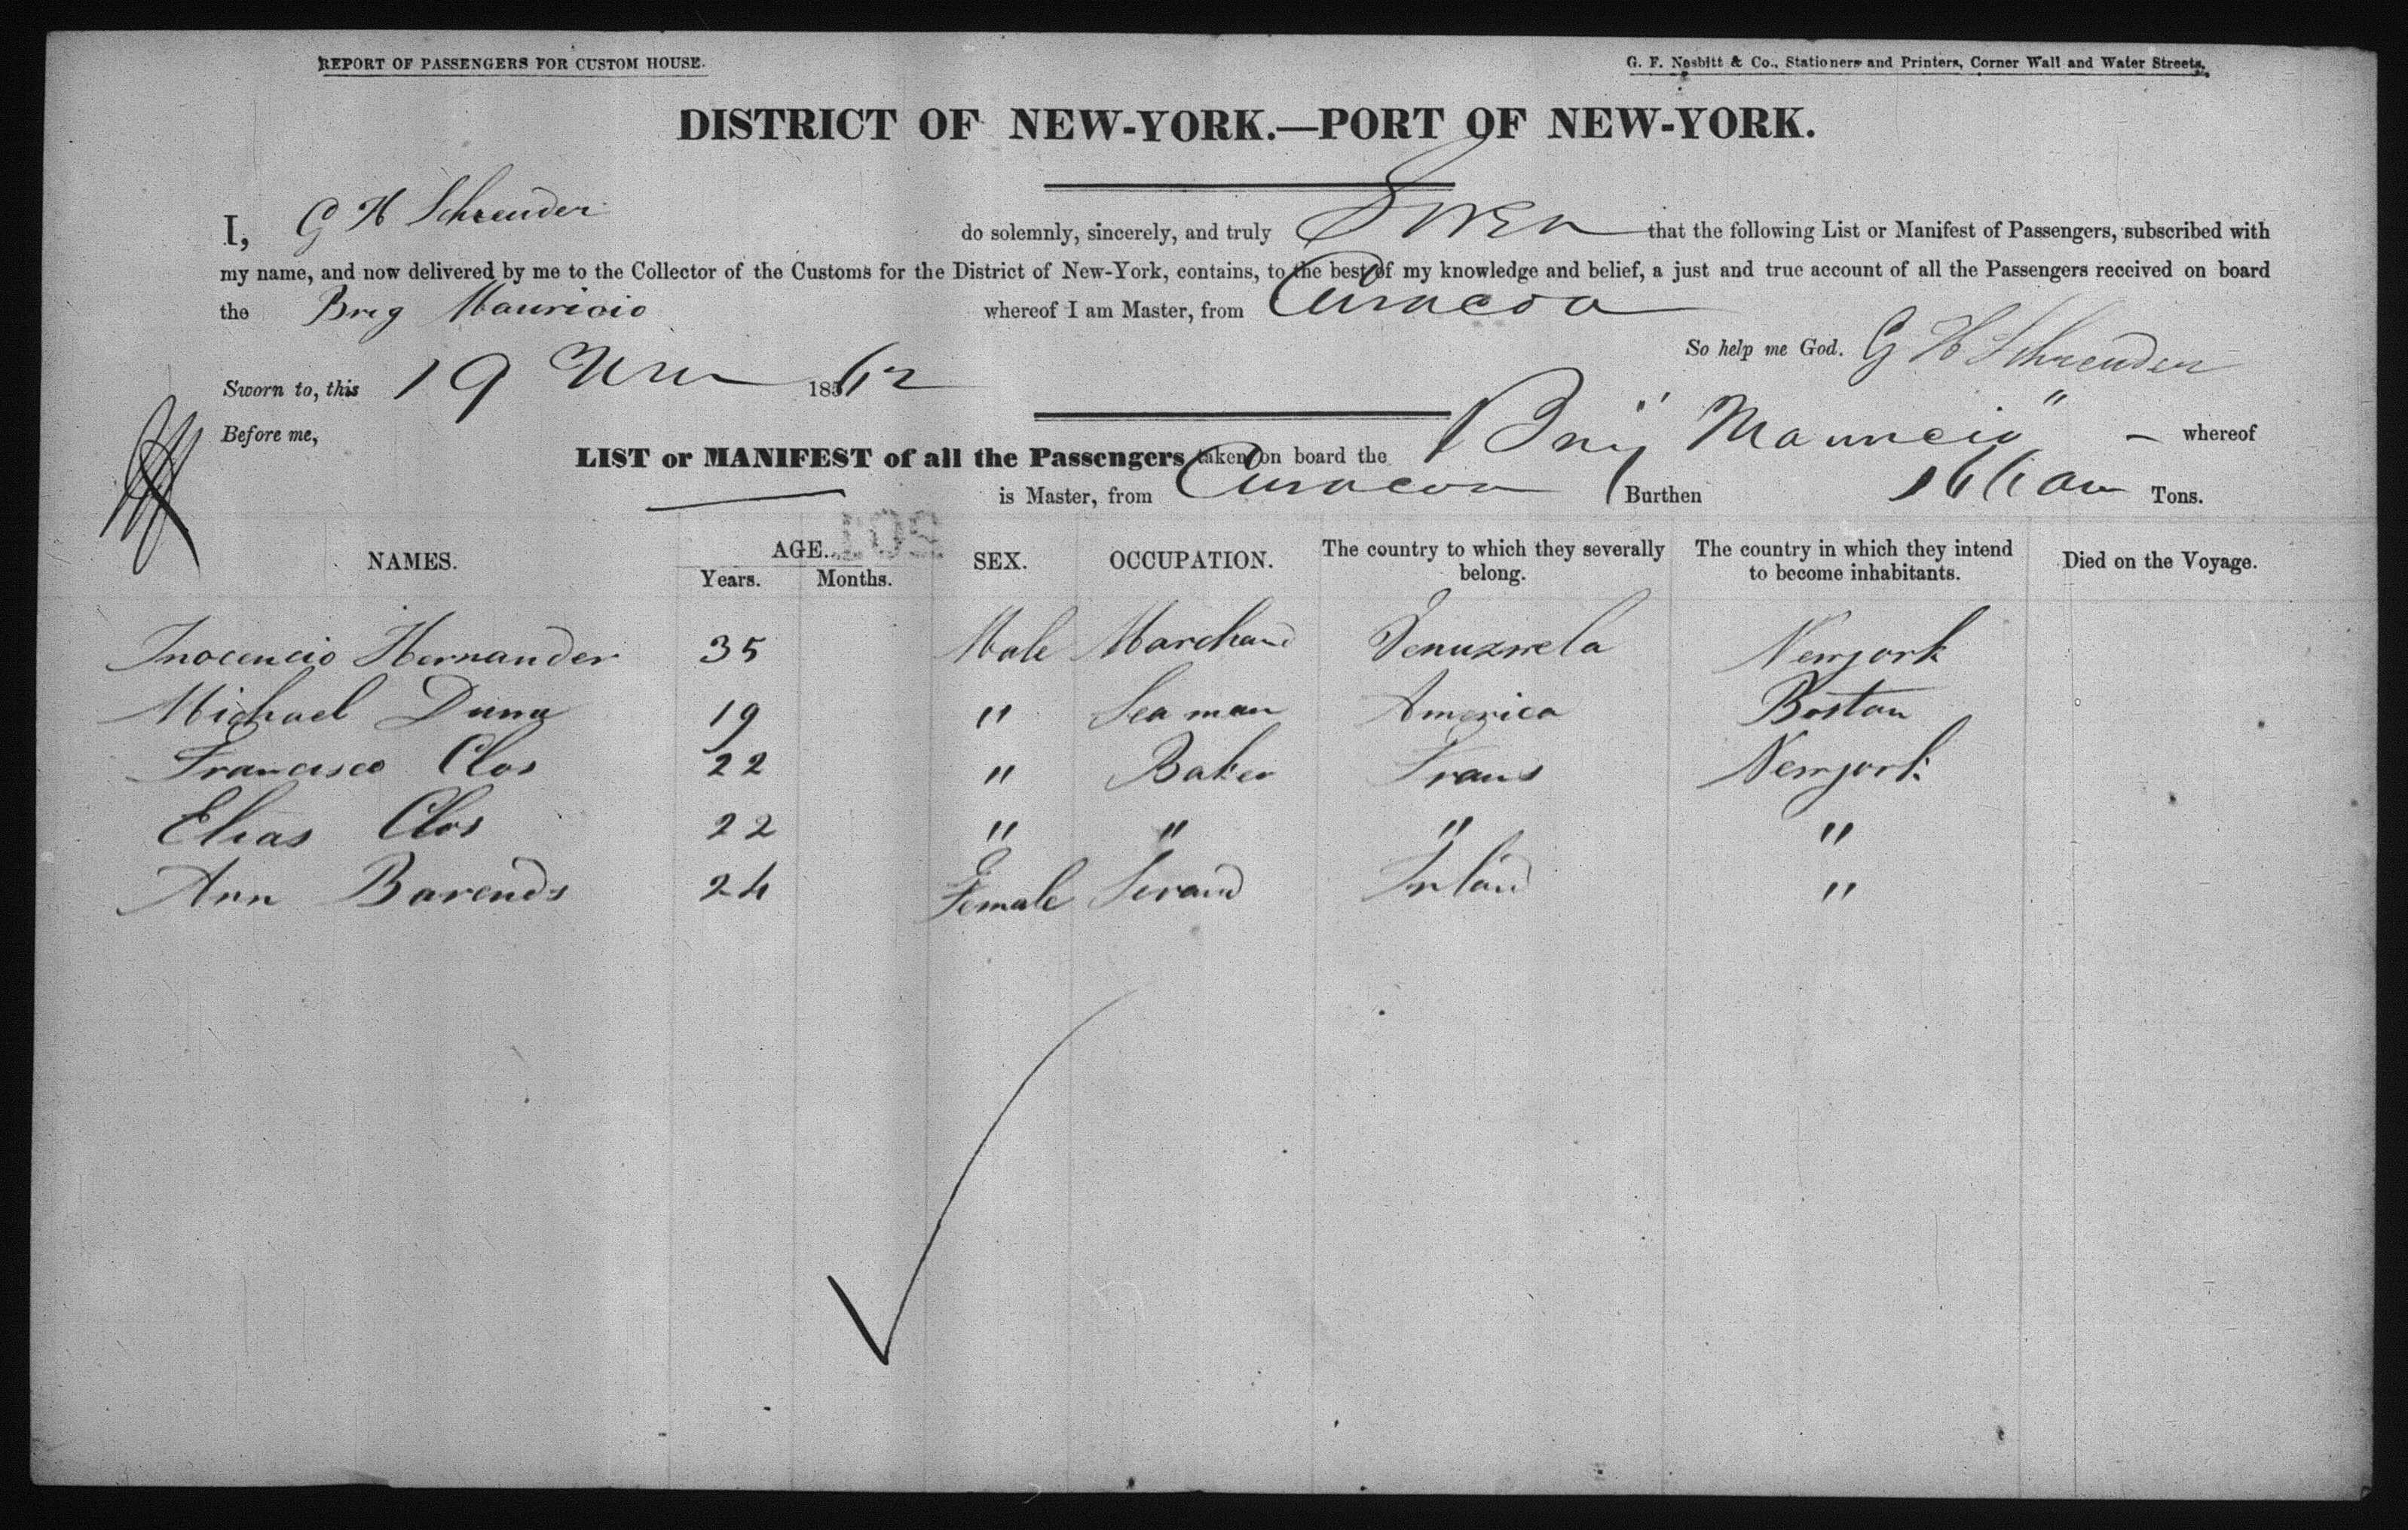 REPORT OF PASSENGERS FOR CUSTOM HOUSE.
G. F. Nesbitt & Co., Stationers and Printers, Corner Wall and Water Streets,
DISTRICT OF NEW-YORK.—PORT OF NEW-YORK.
I, G H Schreuder do solemnly, sincerely, and truly that the following List or Manifest of Passengers, subscribed with
my name, and now delivered by me to the Collector of the Customs for the District of New-York, contains, to the best of my knowledge and belief, a just and true account of all the Passengers received on board
the Brig Mauricio whereof I am Master, from Curacoa
So help me God. G H Schreuder
Sworn to, this 19 1862
Before me,
LIST or MANIFEST of all the Passengers taken on board the Brig "Mauricio" — whereof
is Master, from Curacoa Burthen Tons.
NAMES. AGE. SEX. OCCUPATION. The country to which they severally belong. The country in which they intend to become inhabitants. Died on the Voyage.
Years. Months.
Inocencio Hernander 35 Male Marchand Venuzuela Newyork
Michael 19 " Seaman America Boston
Francisco Clos 22 " Baker Frans Newyork
Elias Clos 22 " " " "
Ann Barends 24 Female Irland "